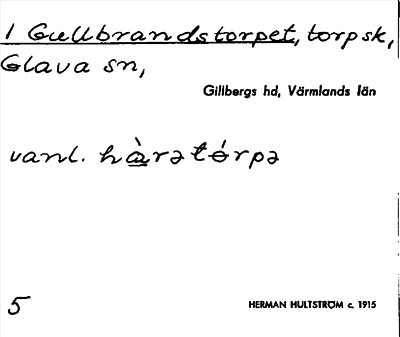 1 Gullbrandstorpet, torpsk,
Glava sn,
Gillbergs hd, Värmlands län
vanl. hàrətórpə
5
HERMAN HULTSTRÖM c. 1915